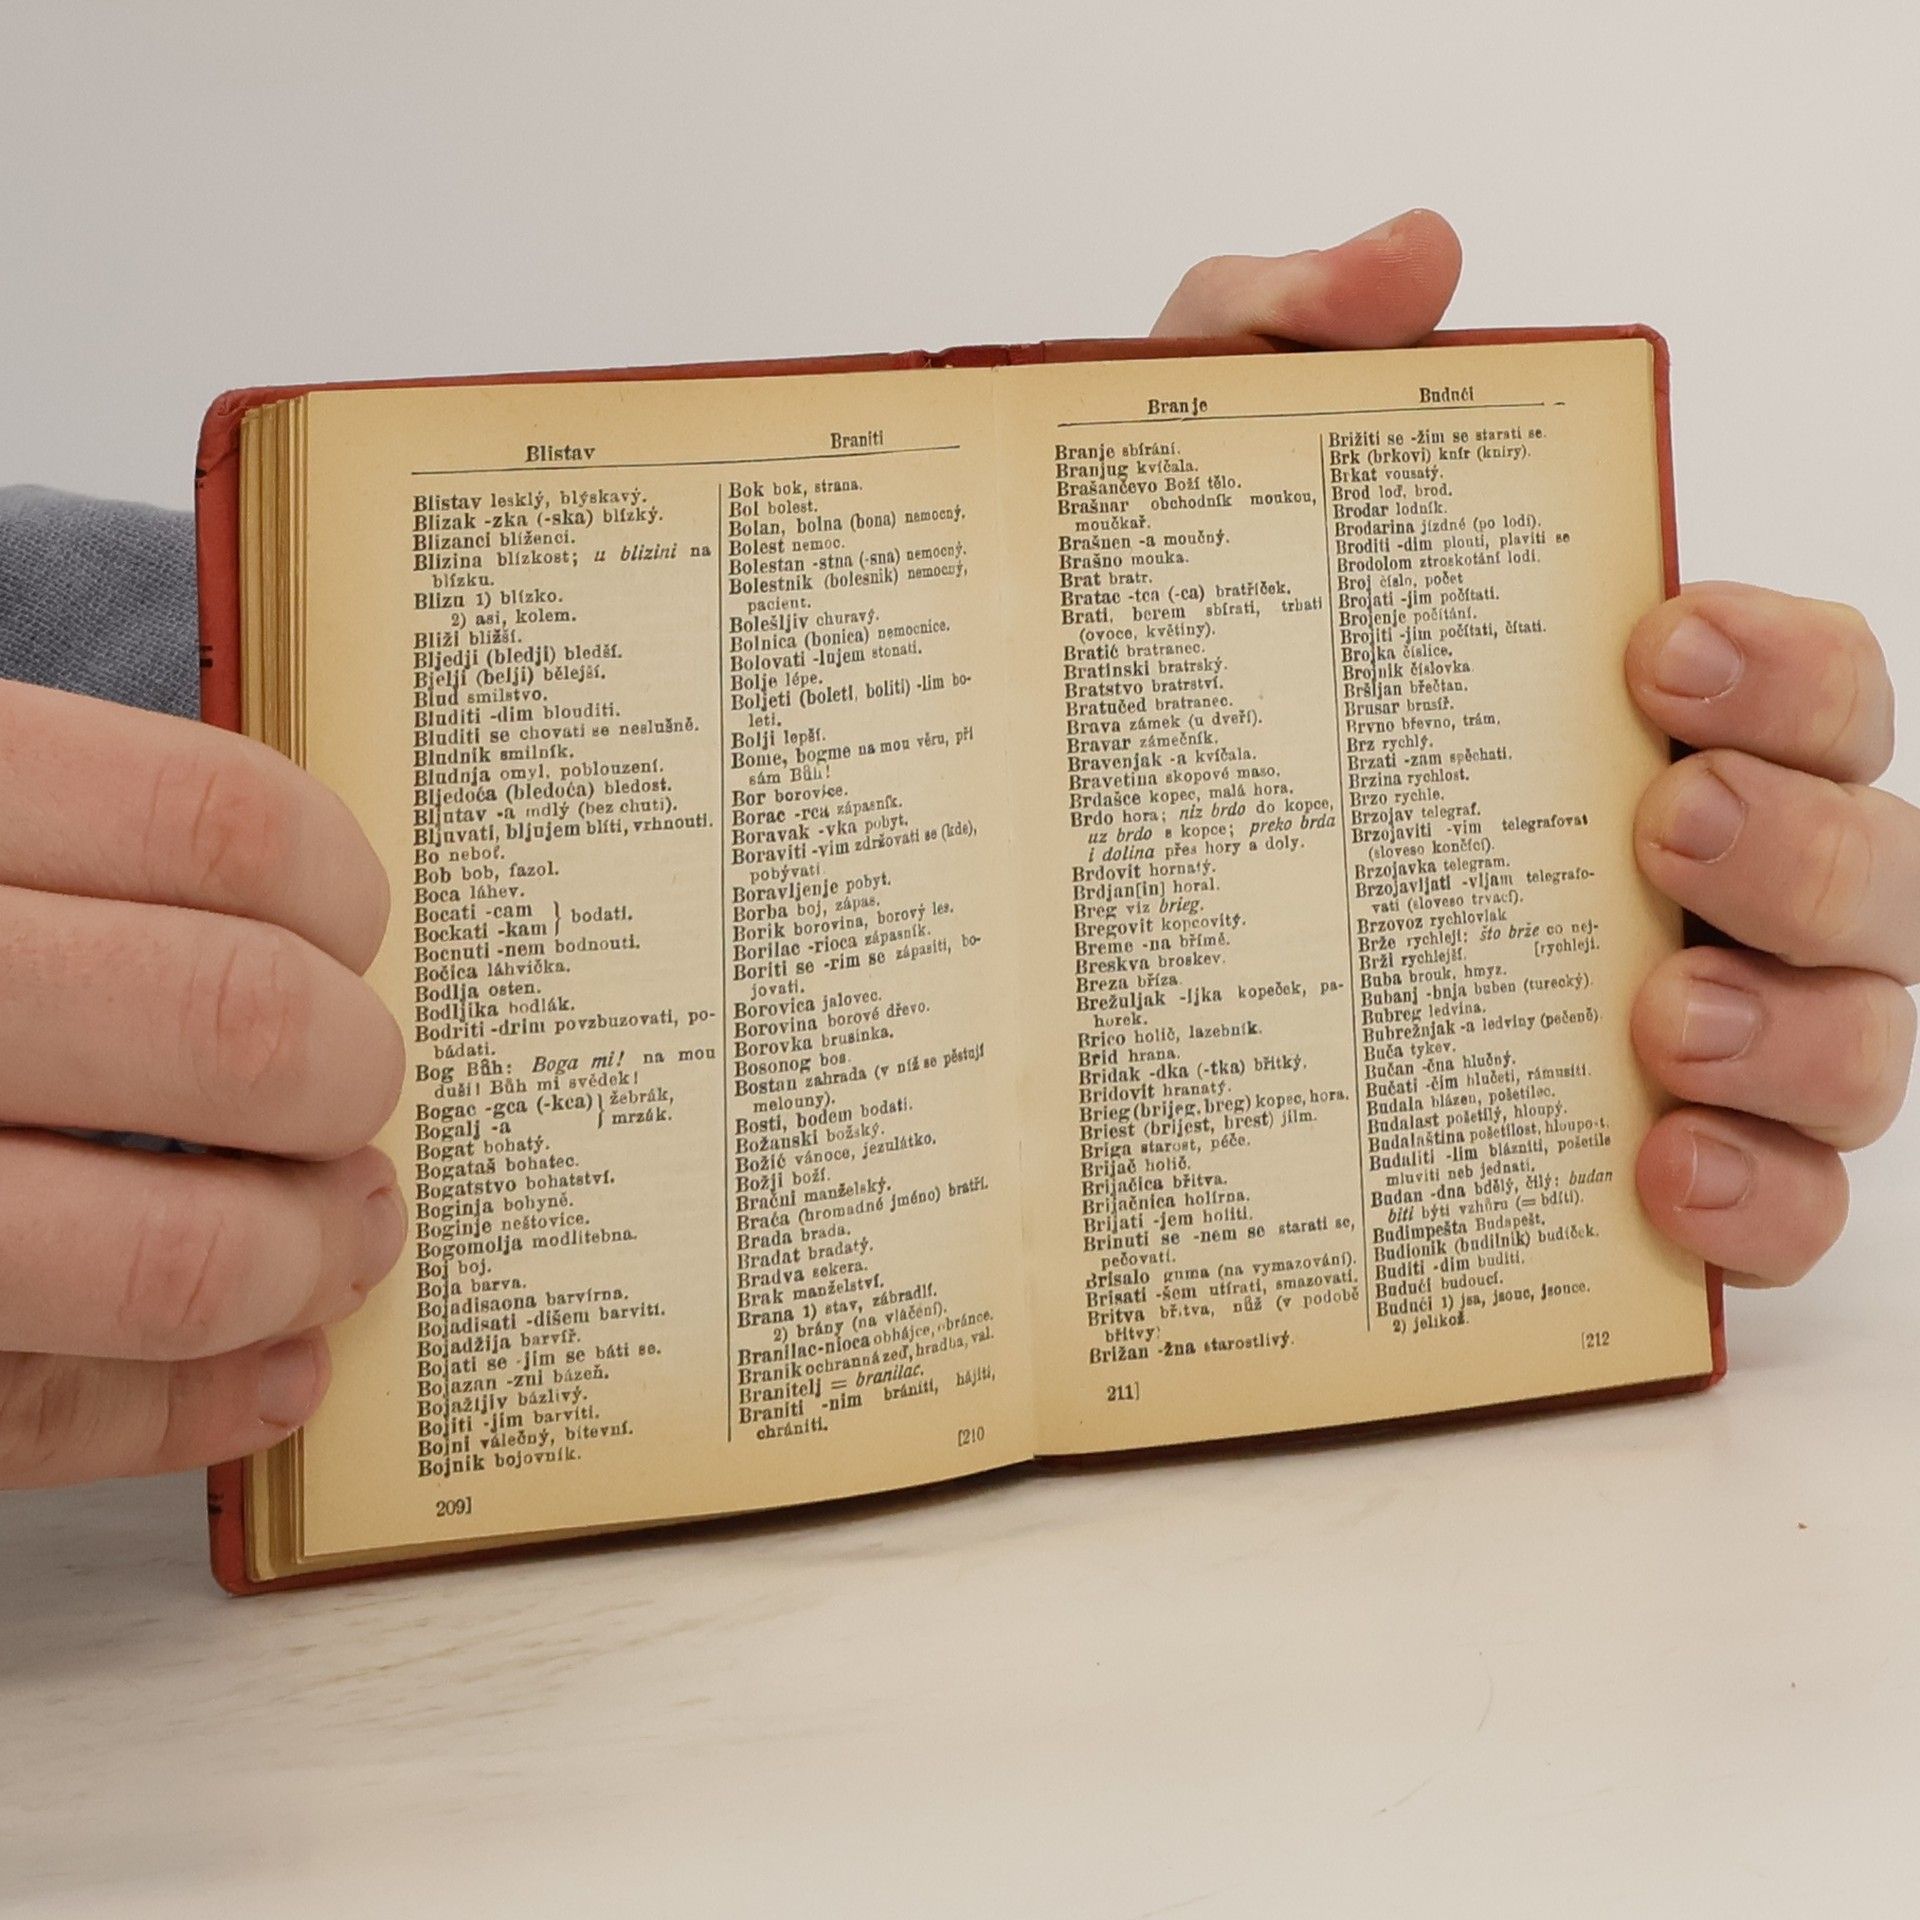 Blistav
Braniti
Blistav lesklý, blýskavý.
Blizak -zka (-ska) blízký.
Blizanci blíženci.
Blizina blízkost; u blizini na
blízku.
Blizu 1) blízko.
2) asi, kolem.
Bliži bližší.
Bljedji (bledji) bledší.
Bjelji (belji) bělejší.
Blud smilstvo.
Bluditi -dim blouditi.
Bluditi se chovati se neslušně.
Bludnik smilník.
Bludnja omyl, poblouzení.
Bljedoća (bledoća) bledost.
Bljutav -a mdlý (bez chuti).
Bljuvati, bljujem blíti, vrhnouti.
Bo neboť.
Bob bob, fazol.
Boca láhev.
Bocati -cam } bodati.
Bockati -kam
Bocnuti -nem bodnouti.
Bočica láhvička.
Bodlja osten.
Bodljika bodlák.
Bodriti -drim povzbuzovati, po-
bádati.
Bog Bůh: Boga mi! na mou
duši! Bůh mi svědek!
Bogac -gca (-kca) } žebrák,
Bogalj -a mrzák.
Bogat bohatý.
Bogataš bohatec.
Bogatstvo bohatství.
Boginja bohyně.
Boginje neštovice.
Bogomolja modlitebna.
Boj boj.
Boja barva.
Bojadisaona barvírna.
Bojadisati -dišem barviti.
Bojadžija barvíř.
Bojati se -jim se báti se.
Bojazan -zni bázeň.
Bojažljiv bázlivý.
Bojiti -jim barviti.
Bojni válečný, bitevní.
Bojnik bojovník.
209]
Bok bok, strana.
Bol bolest.
Bolan, bolna (bona) nemocný.
Bolest nemoc.
Bolestan -stna (-sna) nemocný.
Bolestnik (bolesnik) nemocný,
pacient.
Bolešljiv churavý.
Bolnica (bonica) nemocnice.
Bolovati -lujem stonati.
Bolje lépe.
Boljeti (boleti, boliti) -lim bo-
leti.
Bolji lepší.
Bome, bogme na mou věru, při
sám Bůh!
Bor borovice.
Borac -rca zápasník.
Boravak -vka pobyt.
Boraviti -vim zdržovati se (kde),
pobývati
Boravljenje pobyt.
Borba boj, zápas.
Borik borovina, borový les.
Borilac -rioca zápasník.
Boriti se -rim se zápasiti, bo-
jovati.
Borovica jalovec.
Borovina borové dřevo.
Borovka brusinka.
Bosonog bos.
Bostan zahrada (v níž se pěstují
melouny).
Bosti, bodem bodati.
Božanski božský.
Božić vánoce, jezulátko.
Božji boží.
Bračni manželský.
Braća (hromadné jméno) bratří.
Brada brada.
Bradat bradatý.
Bradva sekera.
Brak manželství.
Brana 1) stav, zábradlí.
2) brány (na vláčení).
Branilac-nioca obhájce, obránce.
Branik ochranná zeď, hradba, val.
Branitelj = branilac.
Braniti -nim brániti, hájiti,
chrániti.
[210
Branje
Budući
Branje sbírání.
Branjug kvíčala.
Brašančevo Boží tělo.
Brašnar obchodník moukou,
moučkař.
Brašnen -a moučný.
Brašno mouka.
Brat bratr.
Bratac -tca (-ca) bratříček.
Brati, berem sbírati, trhati
(ovoce, květiny).
Bratić bratranec.
Bratinski bratrský.
Bratstvo bratrství.
Bratučed bratranec.
Brava zámek (u dveří).
Bravar zámečník.
Bravenjak -a kvíčala.
Bravetina skopové maso.
Brdašce kopec, malá hora.
Brdo hora; niz brdo do kopce,
uz brdo s kopce; preko brda
i dolina přes hory a doly.
Brdovit hornatý.
Brdjan[in] horal.
Breg viz brieg.
Bregovit kopcovitý.
Breme -na břímě.
Breskva broskev.
Breza bříza.
Brežuljak -ljka kopeček, pa-
horek.
Brico holič, lazebník.
Brid hrana.
Bridak -dka (-tka) břitký.
Bridovit hranatý.
Brieg (brijeg, breg) kopec, hora.
Briest (brijest, brest) jilm.
Briga starost, péče.
Brijač holič.
Brijačica břitva.
Brijačnica holírna.
Brijati -jem holiti.
Brinuti se -nem se starati se,
pečovati.
Brisalo guma (na vymazování).
Brisati -šem utírati, smazovati.
Britva břitva, nůž (v podobě
břitvy)
Brižan -žna starostlivý.
211]
Brižiti se -žim se starati se.
Brk (brkovi) knír (kníry).
Brkat vousatý.
Brod loď, brod.
Brodar lodník.
Brodarina jízdné (po lodi).
Broditi -dim plouti, plaviti se
Brodolom ztroskotání lodi.
Broj číslo, počet
Brojati -jim počítati.
Brojenje počítání.
Brojiti -jim počítati, čítati.
Brojka číslice.
Brojnik číslovka
Bršljan břečtan.
Brusar brusíř.
Brvno břevno, trám.
Brz rychlý.
Brzati -zam spěchati.
Brzina rychlost.
Brzo rychle.
Brzojav telegraf.
Brzojaviti -vim telegrafovat
(sloveso končící).
Brzojavka telegram.
Brzojavljati -vljam telegrafo-
vati (sloveso trvací).
Brzovoz rychlovlak
Brže rychleji: što brže co nej-
Brži rychlejší. [rychleji.
Buba brouk, hmyz.
Bubanj -bnja buben (turecký).
Bubreg ledvina.
Bubrežnjak -a ledviny (pečeně).
Buča tykev.
Bučan -čna hlučný.
Bučati -čim hlučeti, rámusiti.
Budala blázen, pošetilec.
Budalast pošetilý, hloupý.
Budalaština pošetilost, hloupost.
Budaliti -lim blázniti, pošetile
mluviti neb jednati.
Budan -dna bdělý, čilý: budan
biti býti vzhůru (= bdíti).
Budimpešta Budapešt.
Budionik (budilnik) budíček.
Buditi -dim buditi.
Budući budoucí.
Budući 1) jsa, jsouc, jsouce.
2) jelikož.
[212